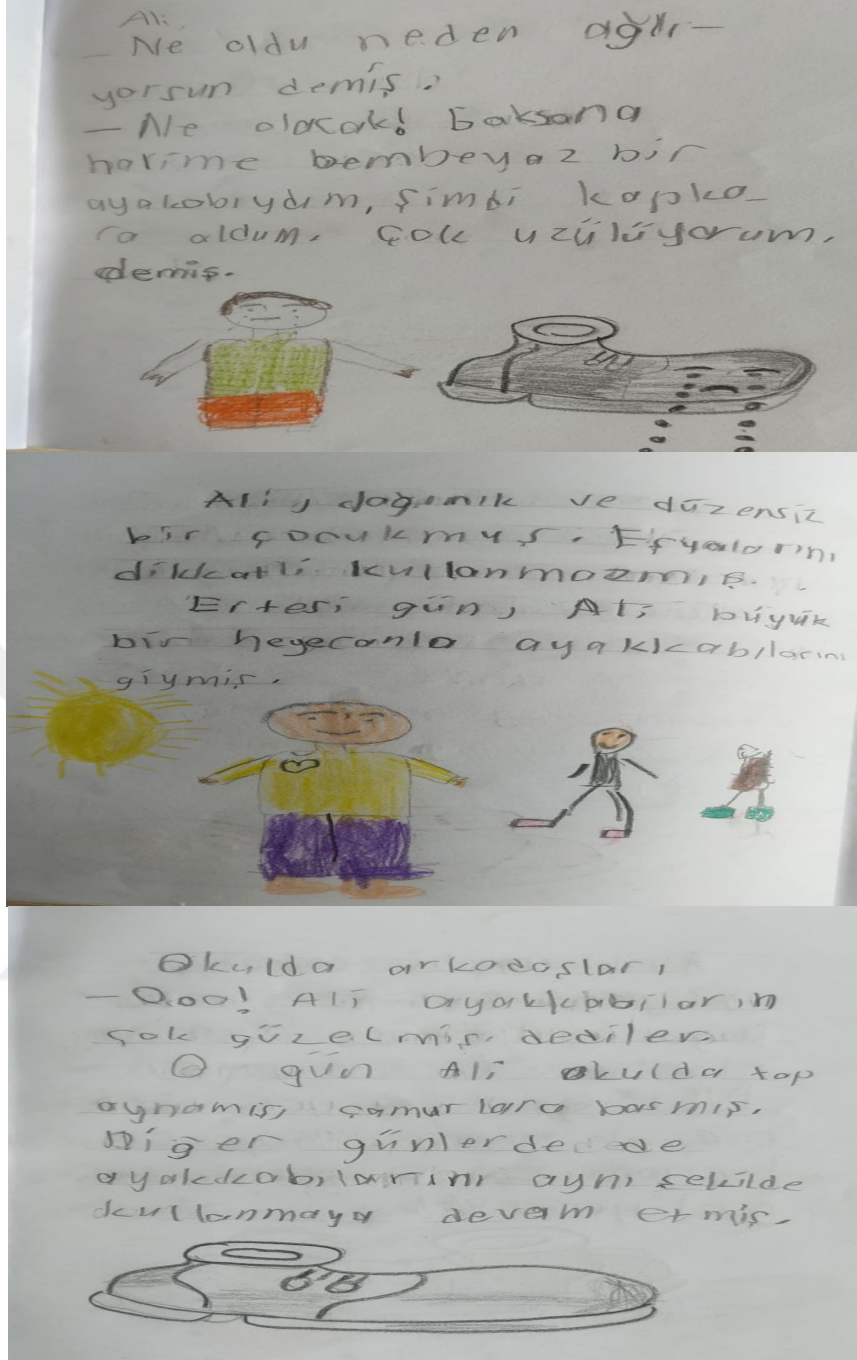 Ali
- Ne oldu neden ağlı-
yorsun demiş.
- Ne olacak! baksana
halime bembeyaz bir
ayakobıydım, şimdi kapka-
ra oldum. Çok üzülüyorum,
demiş.
Ali, dağınık ve düzensiz
bir çocukmuş. Eşyalarını
dikkatli kullanmazmış.
Ertesi gün, Ali büyük
bir heyecanla ayakkabılarını
giymiş.
Okulda arkadaşları
- Ooo! Ali ayakkabıların
çok güzelmiş. dediler.
O gün Ali okulda top
oynamış, çamurlara basmış.
Diğer günlerde de
ayakkabılarını aynı şekilde
kullanmaya devam etmiş.